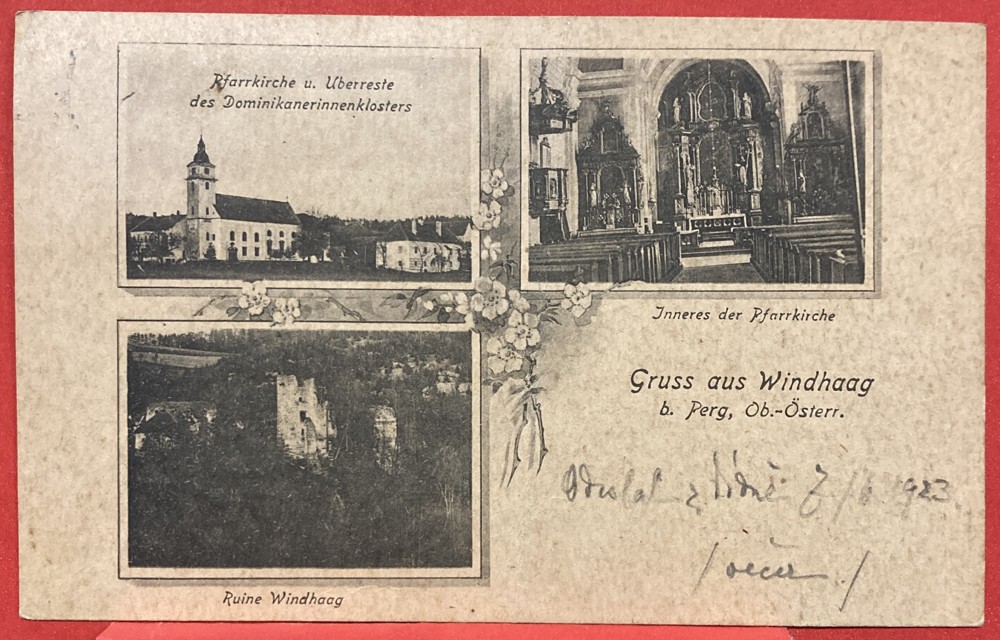 Pfarrkirche u. Uberreste
des Dominikanerinnenklosters
Inneres der Pfarrkirche
Gruss aus Windhaag
b. Perg, Ob.-Österr.
z 7/6 1923
Ruine Windhaag